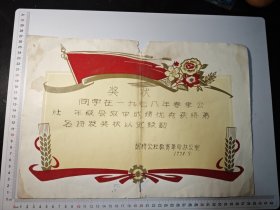 奖状
同学在一九七八年春季公
社 年级 成绩优秀获得第
名特发奖状以资鼓励
公社教育革命办公室
1978.7